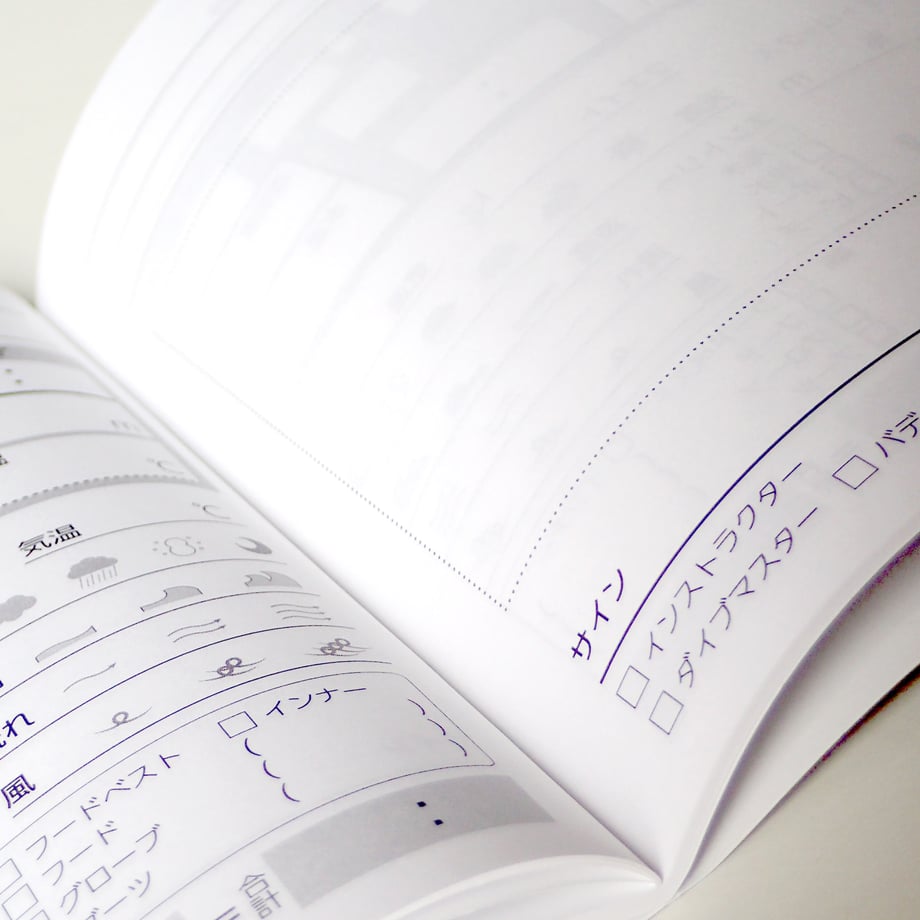 m
℃
℃
気温
れ
風
インナー
フードベスト
フード
グローブ
ブーツ
合計
サイン
インストラクター
ダイブマスター
バデ